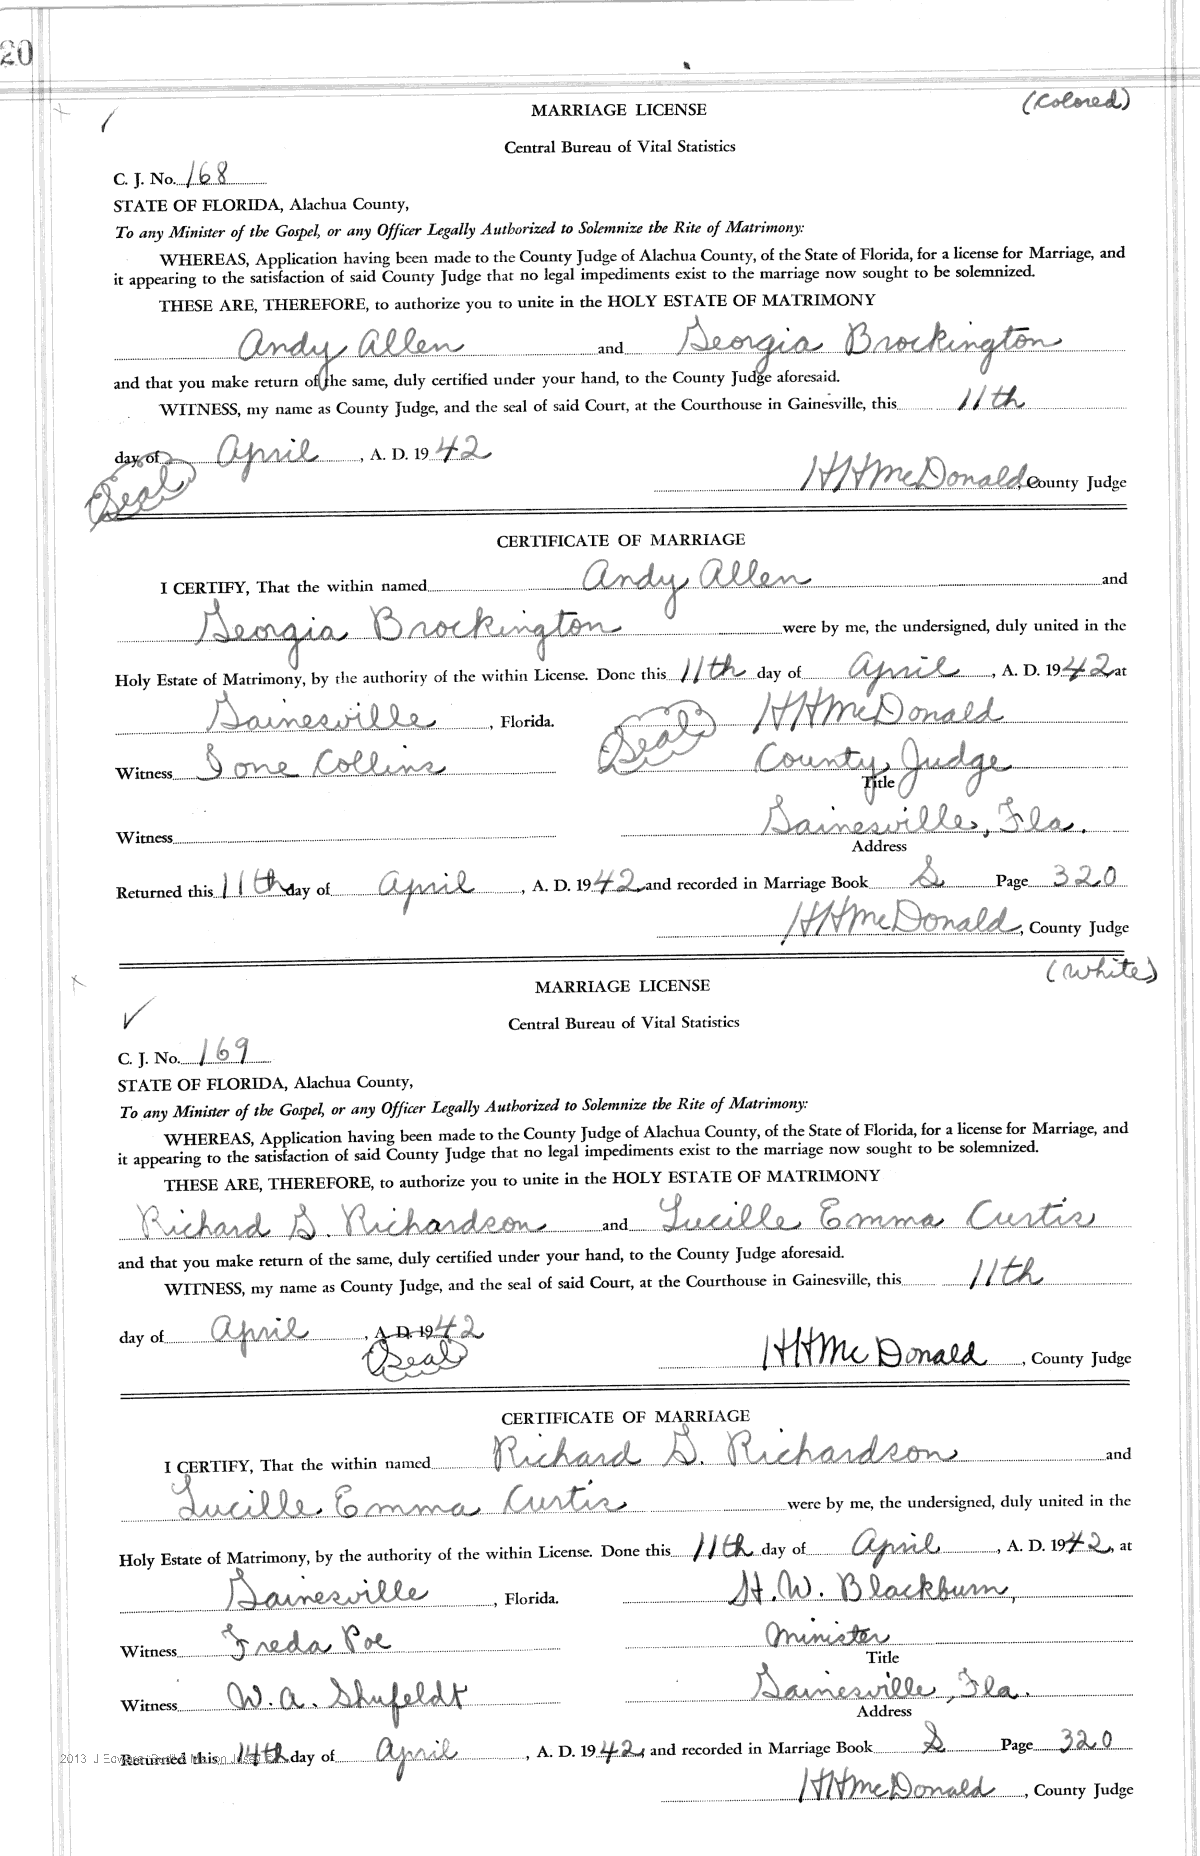 20
(Colored)
MARRIAGE LICENSE
Central Bureau of Vital Statistics
C. J. No. 168
STATE OF FLORIDA, Alachua County,
To any Minister of the Gospel, or any Officer Legally Authorized to Solemnize the Rite of Matrimony:
WHEREAS, Application having been made to the County Judge of Alachua County, of the State of Florida, for a license for Marriage, and
it appearing to the satisfaction of said County Judge that no legal impediments exist to the marriage now sought to be solemnized.
THESE ARE, THEREFORE, to authorize you to unite in the HOLY ESTATE OF MATRIMONY
Andy Allen and Georgia Brockington
and that you make return of the same, duly certified under your hand, to the County Judge aforesaid.
WITNESS, my name as County Judge, and the seal of said Court, at the Courthouse in Gainesville, this 11th
day of April, A. D. 1942
(Seal) HHMcDonald, County Judge
CERTIFICATE OF MARRIAGE
I CERTIFY, That the within named Andy Allen and
Georgia Brockington were by me, the undersigned, duly united in the
Holy Estate of Matrimony, by the authority of the within License. Done this 11th day of April, A. D. 1942 at
Gainesville, Florida. (Seal) HHMcDonald
Witness Ione Collins County Judge
Title
Witness Gainesville, Fla.
Address
Returned this 11th day of April, A. D. 1942 and recorded in Marriage Book S Page 320
HHMcDonald, County Judge
(White)
MARRIAGE LICENSE
Central Bureau of Vital Statistics
C. J. No. 169
STATE OF FLORIDA, Alachua County,
To any Minister of the Gospel, or any Officer Legally Authorized to Solemnize the Rite of Matrimony:
WHEREAS, Application having been made to the County Judge of Alachua County, of the State of Florida, for a license for Marriage, and
it appearing to the satisfaction of said County Judge that no legal impediments exist to the marriage now sought to be solemnized.
THESE ARE, THEREFORE, to authorize you to unite in the HOLY ESTATE OF MATRIMONY
Richard G. Richardson and Lucille Emma Curtis
and that you make return of the same, duly certified under your hand, to the County Judge aforesaid.
WITNESS, my name as County Judge, and the seal of said Court, at the Courthouse in Gainesville, this 11th
day of April, A. D. 1942
(Seal) HHMcDonald, County Judge
CERTIFICATE OF MARRIAGE
I CERTIFY, That the within named Richard G. Richardson and
Lucille Emma Curtis were by me, the undersigned, duly united in the
Holy Estate of Matrimony, by the authority of the within License. Done this 11th day of April, A. D. 1942, at
Gainesville, Florida. H. W. Blackburn,
Witness Freda Poe Minister
Title
Witness W. A. Shufeldt Gainesville, Fla.
Address
2013 J
Returned this 14th day of April, A. D. 1942, and recorded in Marriage Book S Page 320
HHMcDonald, County Judge